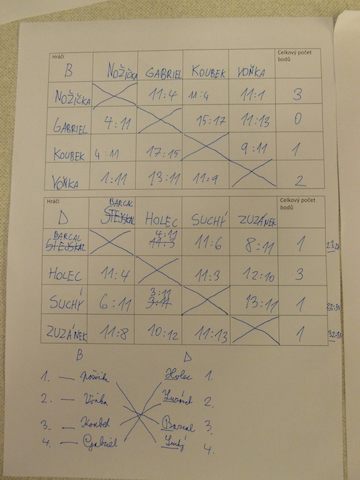 Hráči Celkový počet
B NOŽIČKA GABRIEL KOUBEK VOŇKA bodů
NOŽIČKA 11:4 11:4 11:1 3
GABRIEL 4:11 15:17 11:13 0
KOUBEK 4:11 17:15 9:11 1
VOŇKA 1:11 13:11 11:9 2
Hráči BARCAL Celkový počet
D STEJSKAL HOLEC SUCHÝ ZUZÁNEK bodů
BARCAL 4:11
STEJSKAL 11:3 11:6 8:11 1
HOLEC 11:4 11:3 12:10 3
SUCHÝ 6:11 3:11 13:11 1
ZUZÁNEK 11:8 10:12 11:13 1
B D
1. — Nožička Holec 1.
2. — Voňka Zuzánek 2.
3. — Koubek Barcal 3.
4. — Gabriel Suchý 4.